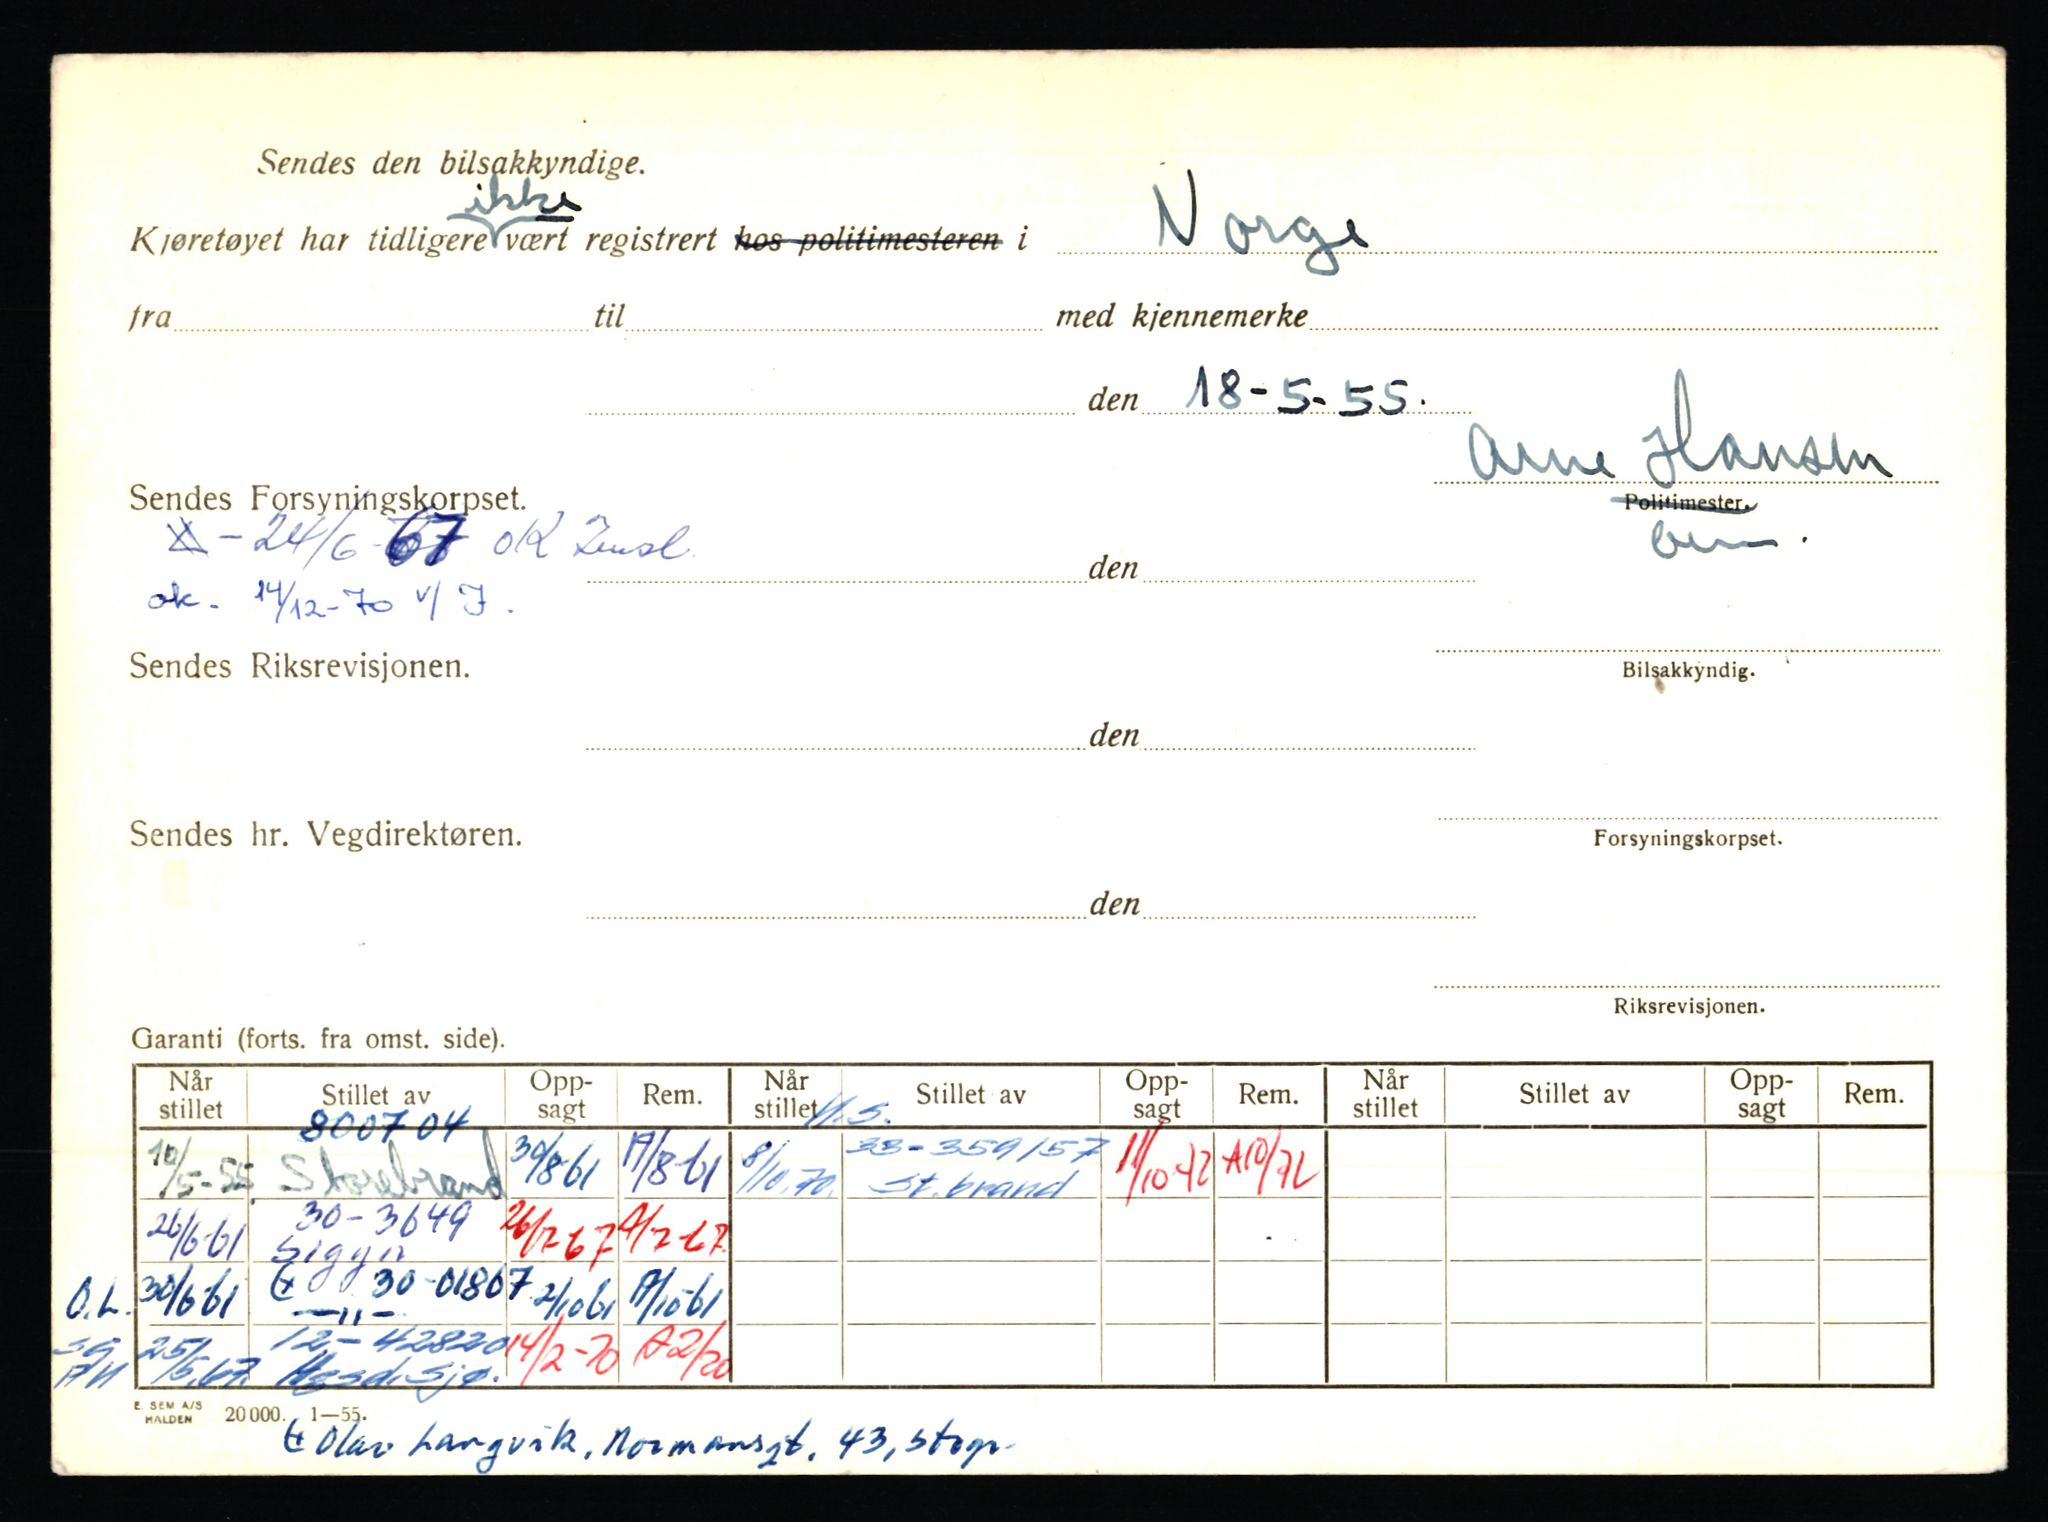 Sendes den bilsakkyndige.
ikke
Kjøretøyet har tidligere vært registrert hos politimesteren i Norge
fra til med kjennemerke
den 18-5-55.
Arne Hansen
Sendes Forsyningskorpset. Politimester.
24/6-67 OK
den
ok. 14/12-70 v/ J.
Sendes Riksrevisjonen. Bilsakkyndig.
den
Sendes hr. Vegdirektøren. Forsyningskorpset.
den
Riksrevisjonen.
Garanti (forts. fra omst. side).
Når stillet Stillet av Opp-sagt Rem. Når stillet Stillet av Opp-sagt Rem. Når stillet Stillet av Opp-sagt Rem.
800704 H.S.
18/5-55. Storebrand 30/8-61 A/8-61 8/10.70. 33-359157 St.brand 11/10-72 A10/72
26/6-61 30-3649 Sigyn 26/7-67 A/7-67.
O.L. 30/6-61 30-01867 —"— 2/10-61 A/10-61
25/5.67. 12-42820 14/2-70 A2/70
E. SEM A/S HALDEN 20000. 1—55.
Olav Langvik, Normannsgt. 43, Stvgr.